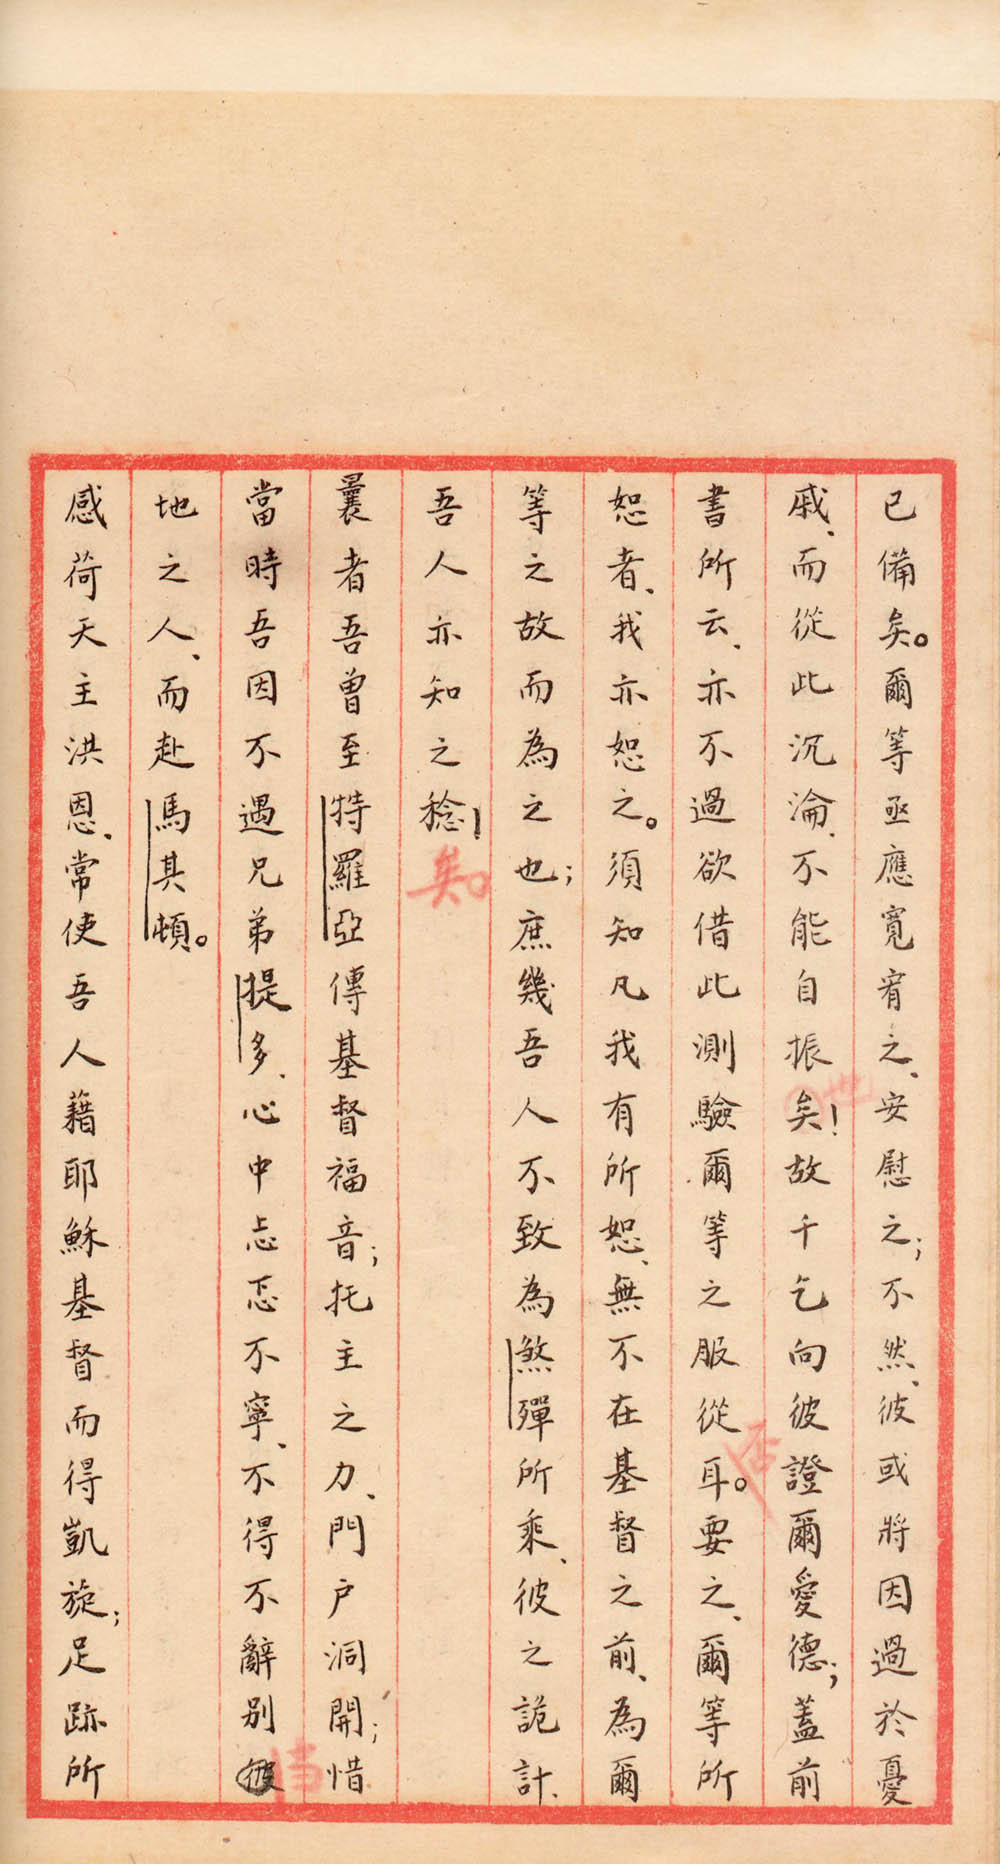 已備矣。爾等亟應寬宥之、安慰之；不然、彼或將因過於憂
戚、而從此沉淪、不能自振矣！故千乞向彼證爾愛德；蓋前
書所云、亦不過欲借此測驗爾等之服從耳。要之、爾等所
恕者、我亦恕之。須知凡我有所恕、無不在基督之前、為爾
等之故而為之也；庶幾吾人不致為煞殫所乘、彼之詭計、
吾人亦知之稔！矣。
曩者吾曾至特羅亞傳基督福音；托主之力、門戶洞開；惜
當時吾因不遇兄弟提多、心中忐忑不寧、不得不辭別彼
当
地之人、而赴馬其頓。
感荷天主洪恩、常使吾人藉耶穌基督而得凱旋；足跡所